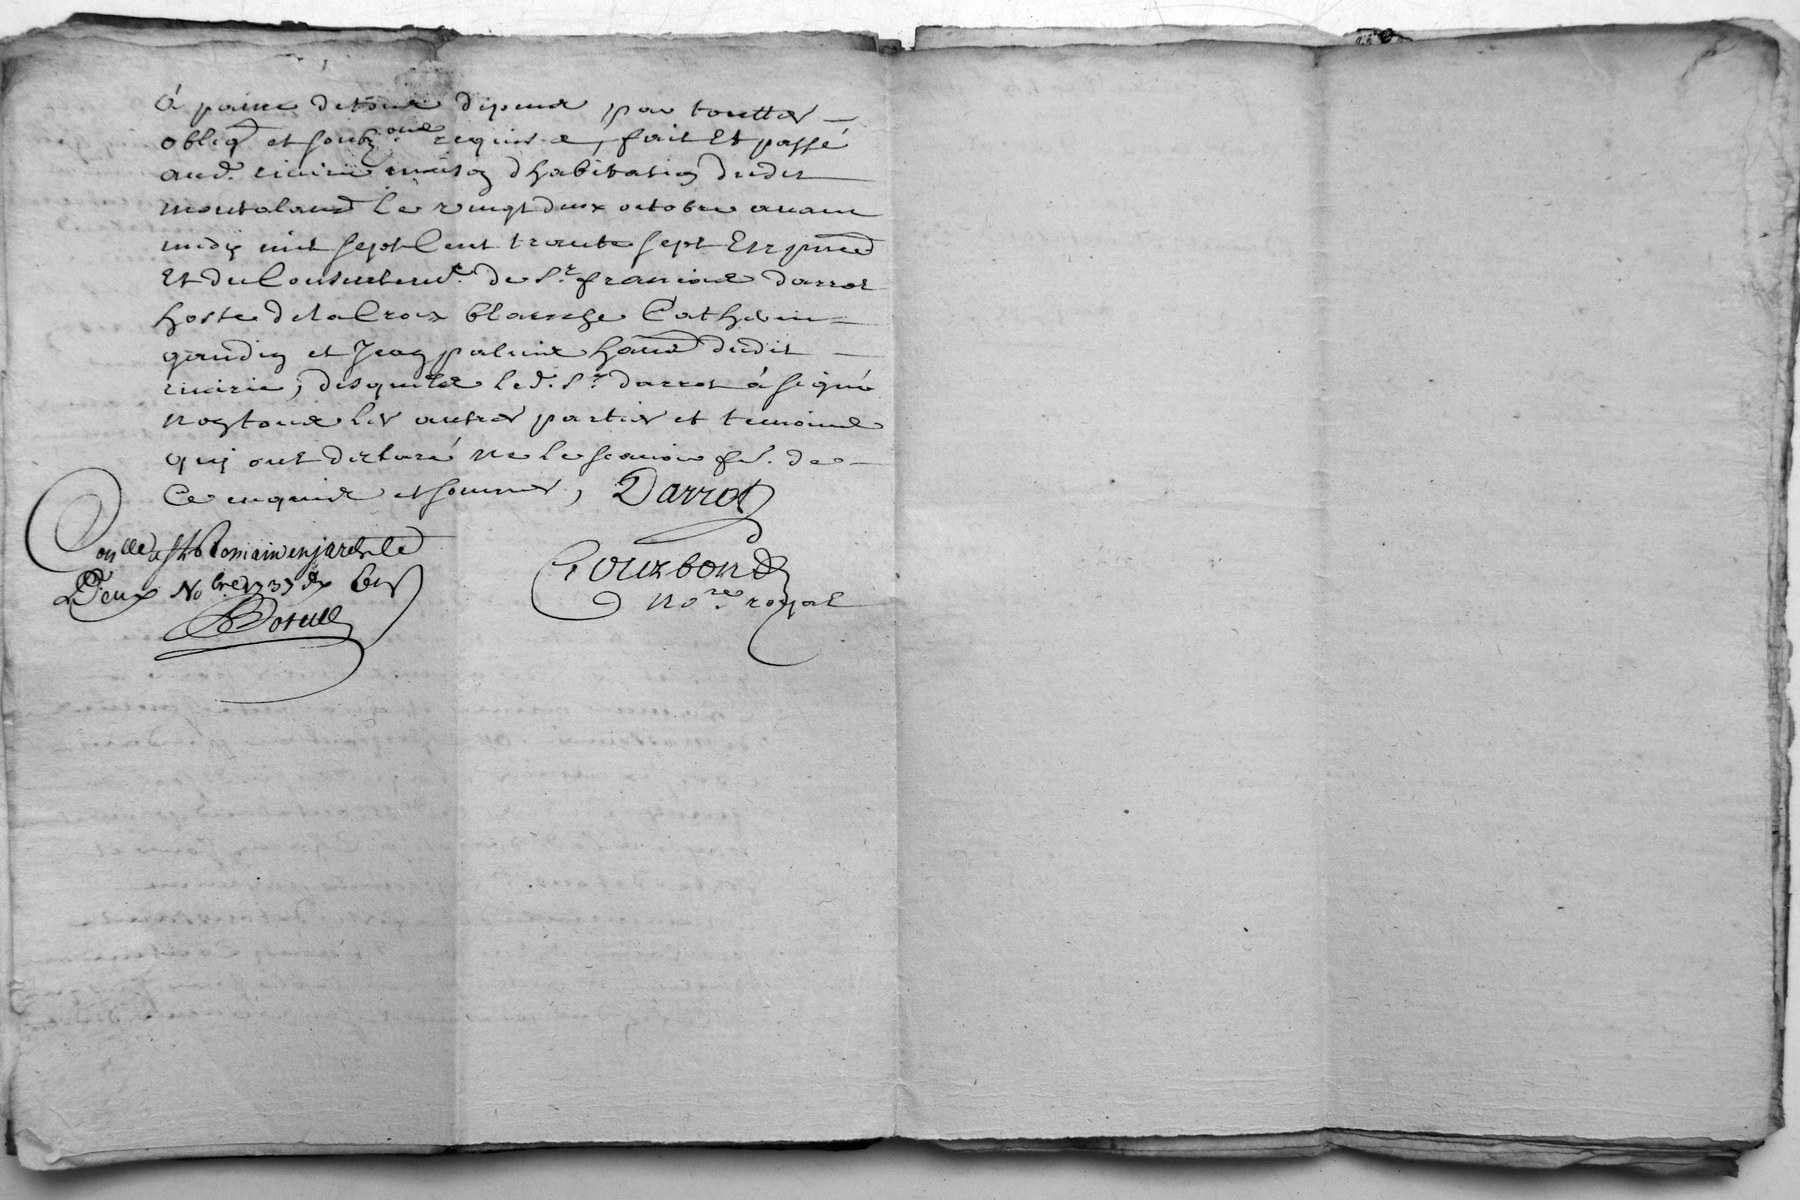 á paine de tous dépens par touttes
obligōn et soubz.ons requises, fait et passé
aud. vivirie maison d'habitation dudit
montaland le vingt deux octobre avant
midy mil sept cent trante sept En p̄nce
et du Consentem.t de S.r francois darrot
hoste de la Croix blanche Catherin
gaudin et Jean palluis hāns dudit
desquels led. S.r darrot á signé
non tous les autres parties et temoins
quy ont declaré ne le scavoir f.e. de
Ce enquis et sommes, Darrot
Con.lle a St Romain en jarest le
Deux No.bre 1737 dix sols
Gourbond
no.re royal